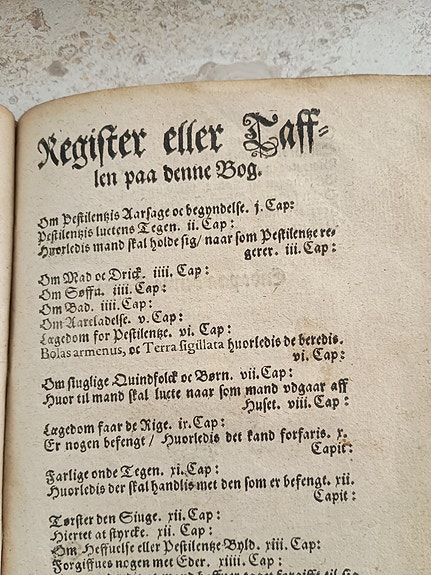 Register eller Taff-
len paa denne Bog.
Om Pestilentzis Aarsage oc begyndelse. j. Cap:
Pestilentzis luctens Tegen. ii. Cap:
Huorledis mand skal holde sig/ naar som Pestilentze re-
gerer. iii. Cap:
Om Mad oc Drick. iiii. Cap:
Om Søffn. iiii. Cap:
Om Bad. iiii. Cap:
Om Aareladelse. v. Cap:
Lægedom for Pestilentze. vi. Cap:
Bolas armenus, oc Terra sigillata huorledis de beredis.
vi. Cap:
Om siuglige Quindfolck oc Børn. vii. Cap:
Huor til mand skal lucte naar som mand vdgaar aff
Huset. viii. Cap:
Lægedom faar de Rige. ix. Cap:
Er nogen befengt/ Huorledis det kand forfaris. x.
Capit:
Farlige onde Tegen. xi. Cap:
Huorledis der skal handlis met den som er befengt. xii.
Capit:
Tørster den Siuge. xii. Cap:
Hiertet at styrcke. xii. Cap:
Om Heffuelse eller Pestilentze Byld. xiii. Cap:
Forgiffues nogen met Eder. xiiii. Cap: